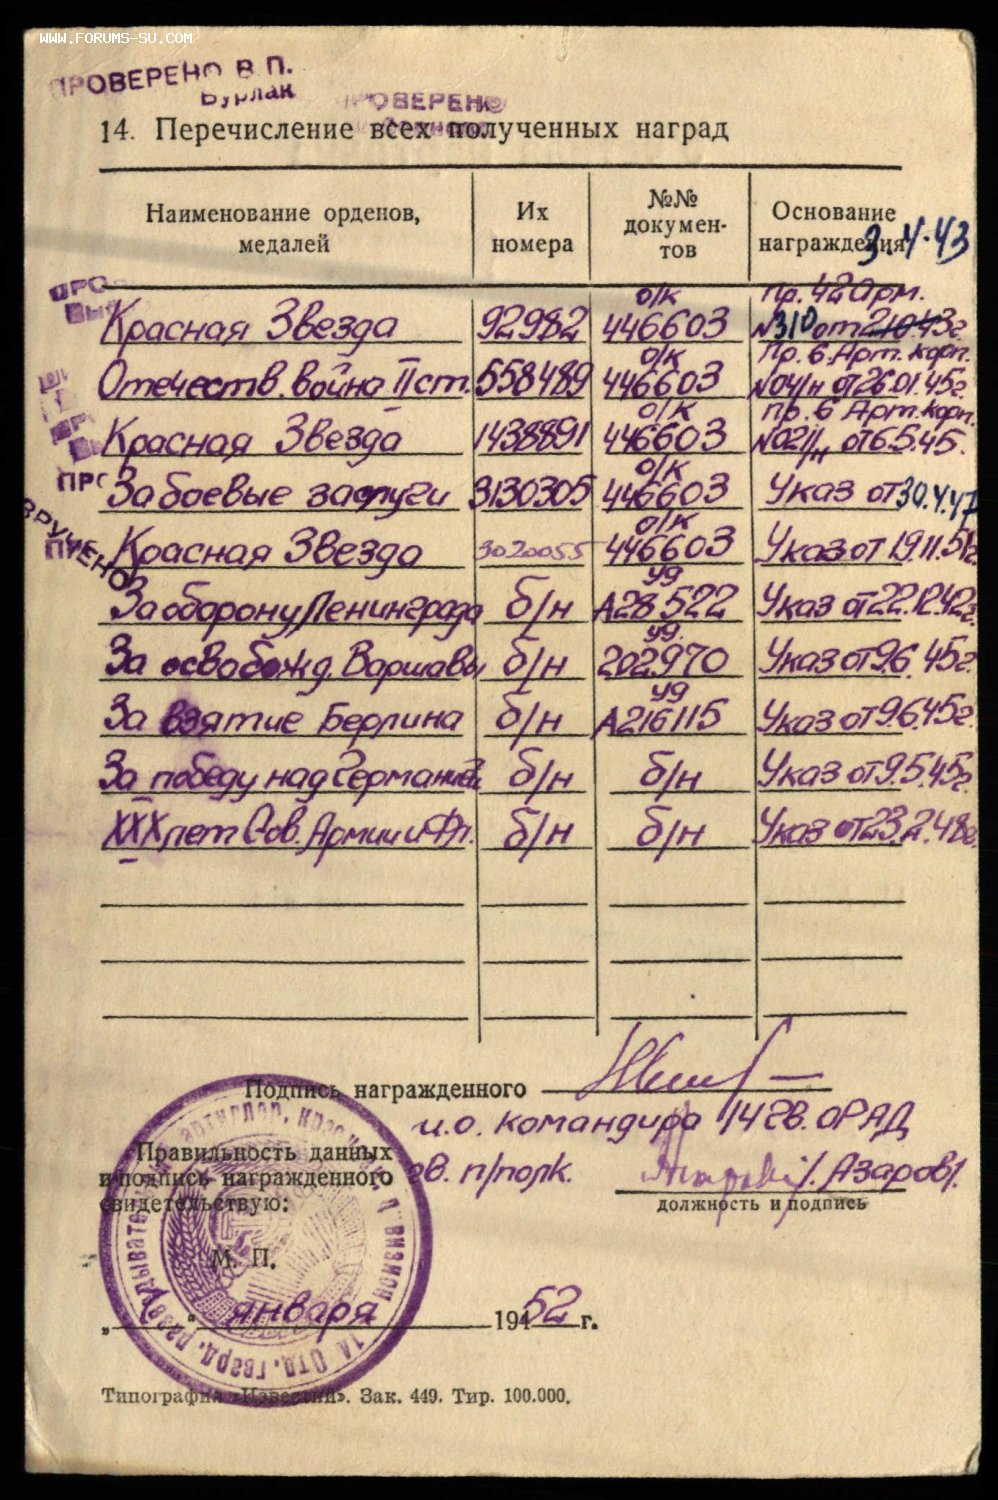 WWW.FORUMS-SU.COM
ПРОВЕРЕНО В.П.
Бурлак
ПРОВЕРЕНО
14. Перечисление всех полученных наград
Наименование орденов, медалей
Их номера
№№ документов
Основание награждения
3.4.43
Красная Звезда 92982 о/к 446603 Пр. 42 Арм. №310 от 2.10.43г.
Отечеств. война II ст. 558489 о/к 446603 Пр. 6. Арт. корп. №04/н от 26.01.45г.
Красная Звезда 1438891 о/к 446603 Пр. 6 Арт. корп. №021/н от 6.5.45.
За боевые заслуги 3130305 о/к 446603 Указ от 30.4.47
Красная Звезда 3020055 о/к 446603 Указ от 19.11.51г.
За оборону Ленинграда б/н уд А28522 Указ от 22.12.42г.
За освобожд. Варшавы б/н уд. 202970 Указ от 9.6.45г.
За взятие Берлина б/н уд А216115 Указ от 9.6.45г.
За победу над Германией б/н б/н Указ от 9.5.45г.
XXX лет Сов. Армии и Фл. б/н б/н Указ от 23.2.48г.
ВРУЧЕНО
Подпись награжденного
и.о. командира 14 гв. ОРАД
Правильность данных
и подпись награженного
свидетельствую:
гв. п/полк. /Азаров/.
должность и подпись
М. П.
„ “ января 1952 г.
Типография «Известий». Зак. 449. Тир. 100.000.